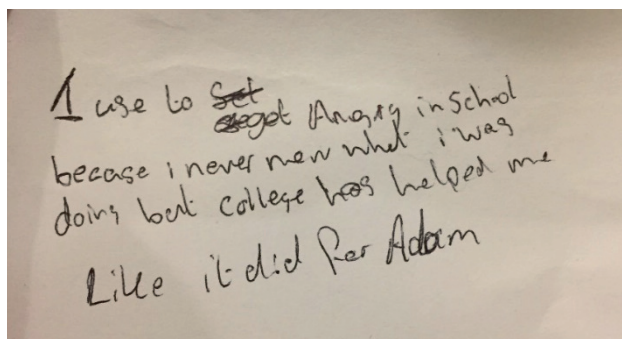 I use to
get Angry in School
becase i never new what i was
doing but college has helped me
Like it did for Adam